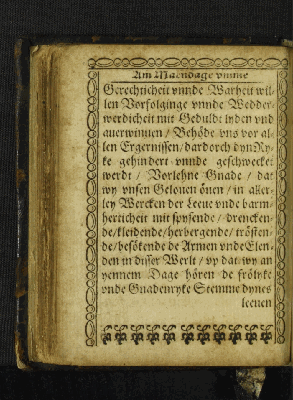 Am Maendage vmme
Gerechticheit vnnde Warheit wil-
len Vorfolginge vnnde Wedder-
werdicheit mit Gedult lyden vnd
auerwinnen / Behöde vns vor al-
len Ergernissen / dardorch dyn Ry-
ke gehindert vnnde geschwecket
werdt / Vorlehne Gnade / dat
wy vnsen Gelouen önen / in aller-
ley Wercken der Leeue vnde barm-
herticheit mit spysende / drencken-
de / kleidende / herbergende / trösten-
de / besökende de Armen vnde Elen-
den in disser Werlt / vp dat wy an
yennem Dage hören de frölyke
vnde Gnadenryke Stemme dynes
leeuen